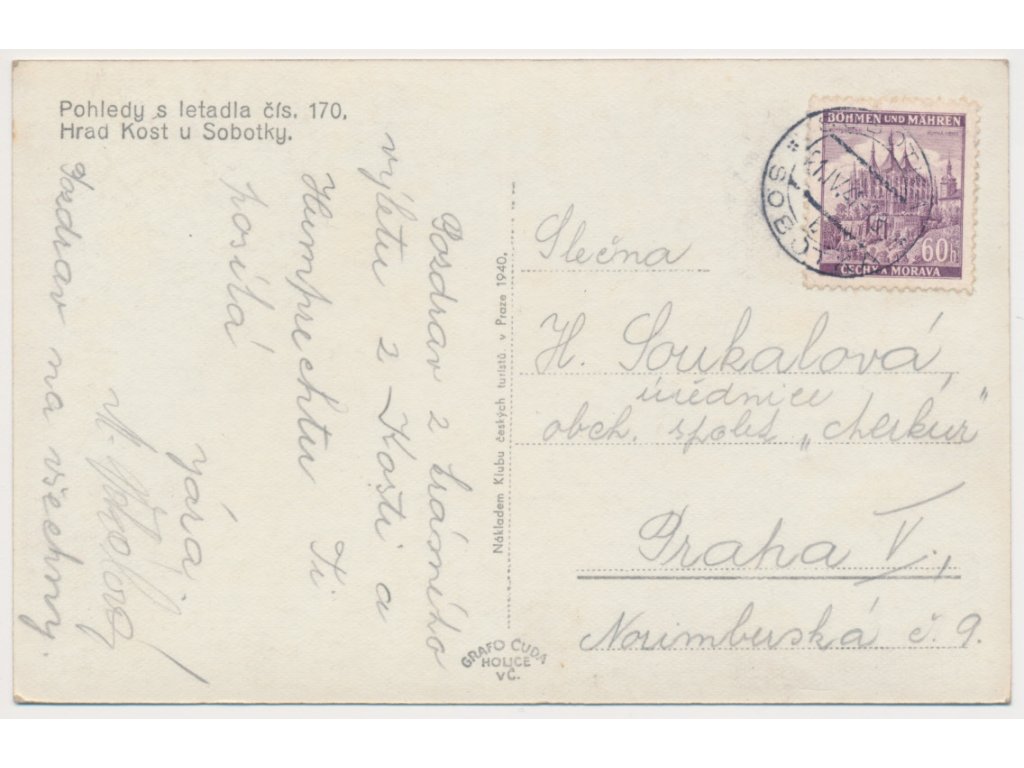 Pohledy s letadla čís. 170,
Hrad Kost u Sobotky.
Posdrav z krásného
výletu z Kosti a
Humprechtu Ti
posílá
Jára
Posdrav na všechny.
Nákladem Klubu českých turistů v Praze 1940.
GRAFO ČUDA
HOLICE
VČ.
BÖHMEN UND MÄHREN
60h
ČECHY A MORAVA
SOBOTKA
Slečna
H. Soukalová,
úřednice
obch. společ „Merkur"
Praha V.,
Norimberská č. 9.